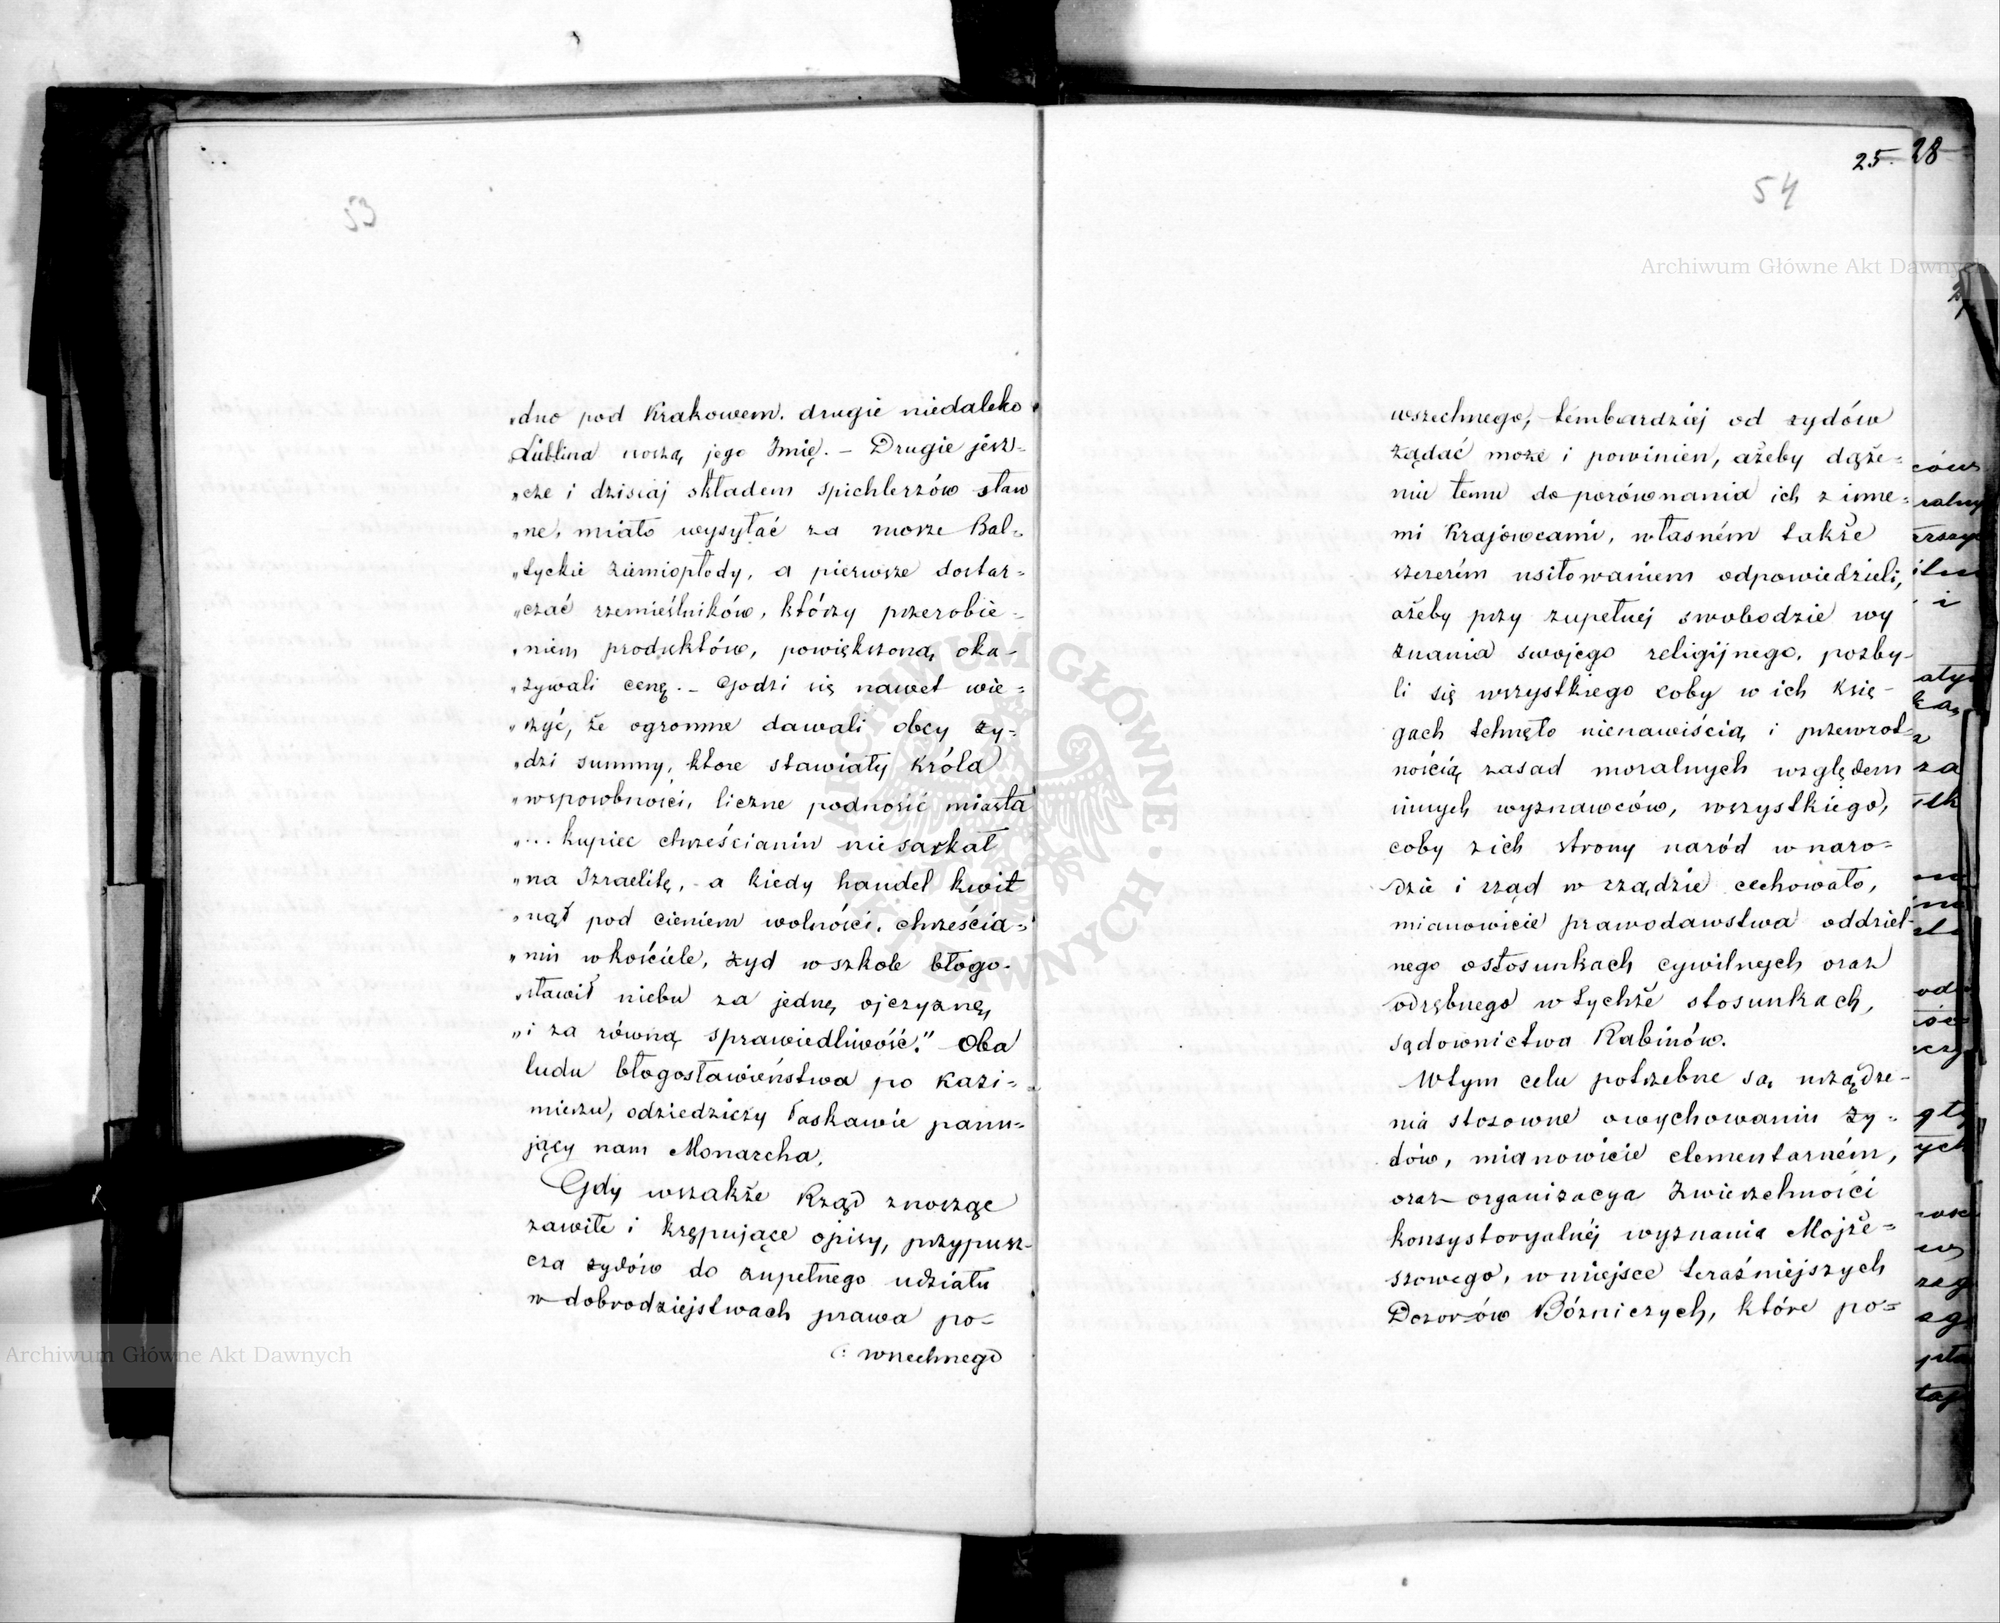 53
„dno pod Krakowem. drugie niedaleko
„Lublina noszą jego Imię. – Drugie jesz-
„cze i dzisiaj składem spichlerzów sław
„ne, miało wysyłać za morze Bal-
„tyckie ziemiopłody, a pierwsze dostar-
„czać rzemieślników, którzy przerobie-
„niem produktów, powiększoną oka-
„zywali cenę. – Godzi się nawet wie-
„rzyć, że ogromne dawali obcy ży-
„dzi summy, które stawiały króla
„wsposobności, liczne podnosić miasta
„... kupiec chrześcianin nie sarkał
„na Izraelitę, a kiedy handel kwit
„nął pod cieniem wolności, chrześcia-
„nin w kościele, żyd w szkole błogo-
„sławił niebu za jednę ojczyznę,
„i za równą sprawiedliwość." Oba
ludu błogosławieństwa po Kazi-
mierzu, odziedziczy łaskawie panu-
jący nam Monarcha.
Gdy wszakże Rząd znosząc
zawiłe i krępujące opisy, przypusz-
cza żydów do zupełnego udziału
w dobrodziejstwach prawa po-
wszechnego
25. 28
54
wszechnego, tembardziej od żydów
żądać może i powinien, ażeby dąże-
niu temu do porównania ich z inne-
mi Krajowcami, własném także
szczerém usiłowaniem odpowiedzieli,
ażeby przy zupełnej swobodzie wy
znania swojego religijnego, pozby-
li się wszystkiego coby w ich księ-
gach tchnęło nienawiścią i przewrot-
nością zasad moralnych względem
innych wyznawców, wszystkiego,
coby z ich strony naród w naro-
dzie i rząd w rządzie cechowało,
mianowicie prawodawstwa oddziel-
nego o stosunkach cywilnych oraz
odrębnego w tychże stosunkach,
sądownictwa Rabinów.
W tym celu potrzebne są urządze-
nia stosowne o wychowaniu ży-
dów, mianowicie elementarném,
oraz organizacya Zwierzchności
konsystoryalnéj wyznania Mojże-
szowego, w miejsce teraźniejszych
Dozorów Bóżniczych, które po-
Archiwum Główne Akt Dawnych
Archiwum Główne Akt Dawnych
ARCHIWUM GŁÓWNE AKT DAWNYCH